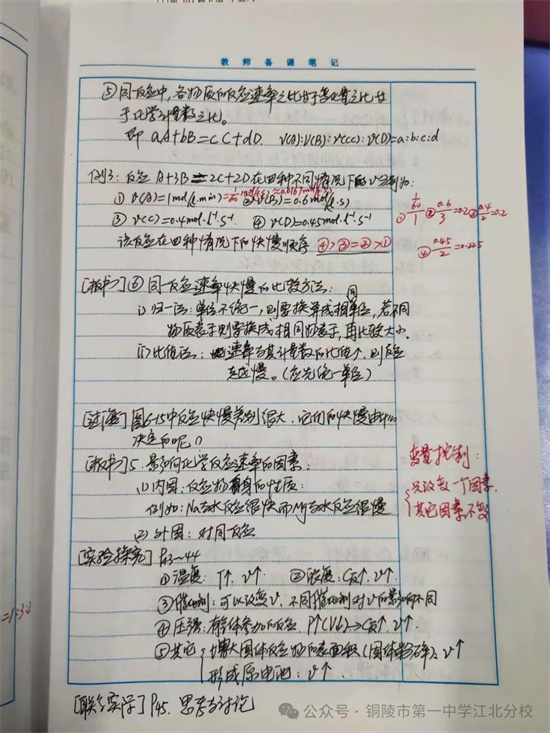 教师备课笔记
⑤同一反应中,各物质的反应速率之比等于
于化学计量数之比。
即 aA+bB=cC+dD. v(A):v(B):v(C):v(D)=a:b:c:d
例3: 反应 A+3B=2C+2D在四种不同情况下的v分别为:
① v(A)=1mol/(L·min) ② v(B)=0.6mol/(L·s)
③ v(C)=0.4mol·L⁻¹·s⁻¹ ④ v(D)=0.45mol·L⁻¹·s⁻¹
该反应在四种情况下的快慢顺序 ④>③=②>①
[板书]⑥同一反应速率快慢的比较方法:
i)归一法:单位不统一,则要换算成相同单位,若不同
物质表示则要换成相同物质表示,再比较大小。
ii)比值法:速率与其计量数的比值↑,则反应
越慢。(应先统一单位)
[过渡]图6-15中反应快慢差别很大,它们的快慢由
决定的呢?
[板书]5.影响化学反应速率的因素:
(1)内因:反应物自身的性质:
例如:Na与水反应很快而Mg与水反应很慢
变量控制:
只改变一个因素,
其它因素不变
(2)外因:对同一反应
[实验探究]P43~44
①温度:T↑, v↑. ②浓度:C反↑, v↑.
③催化剂:可以改变v.不同催化剂对v的影响不同
④压强:有气体参加的反应. P↑(V↓)→C反↑, v↑.
⑤其它:增大固体反应物的表面积(固体粉碎): v↑
形成原电池:v↑.
[联系实际]P45.思考与讨论
公众号·铜陵市第一中学江北分校